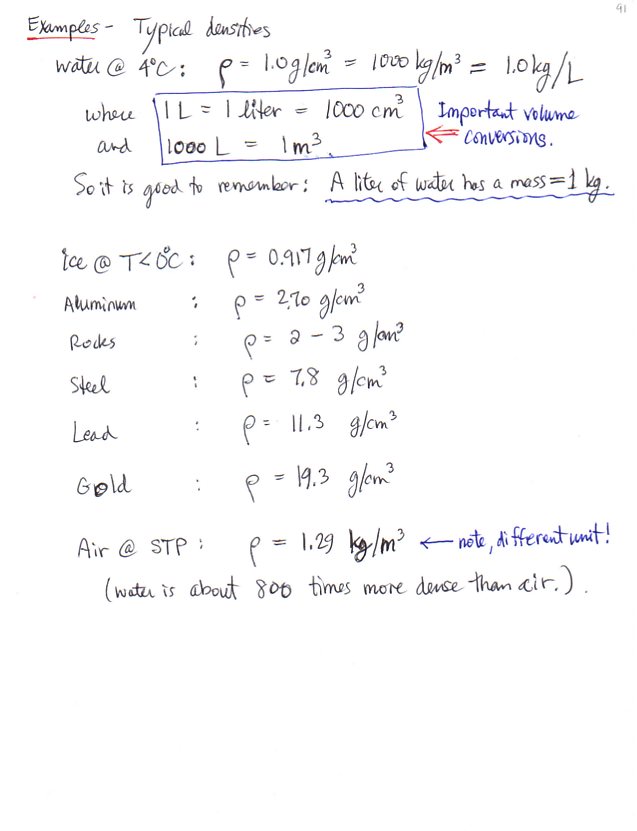 91
Examples - Typical densities
water @ 4°C: ρ = 1.0 g/cm³ = 1000 kg/m³ = 1.0 kg/L
where 1 L = 1 liter = 1000 cm³ Important volume
and 1000 L = 1 m³. conversions.
So it is good to remember: A liter of water has a mass = 1 kg.
Ice @ T < 0°C: ρ = 0.917 g/cm³
Aluminum : ρ = 2.70 g/cm³
Rocks : ρ = 2 - 3 g/cm³
Steel : ρ = 7.8 g/cm³
Lead : ρ = 11.3 g/cm³
Gold : ρ = 19.3 g/cm³
Air @ STP : ρ = 1.29 kg/m³ ← note, different unit!
(water is about 800 times more dense than air.).